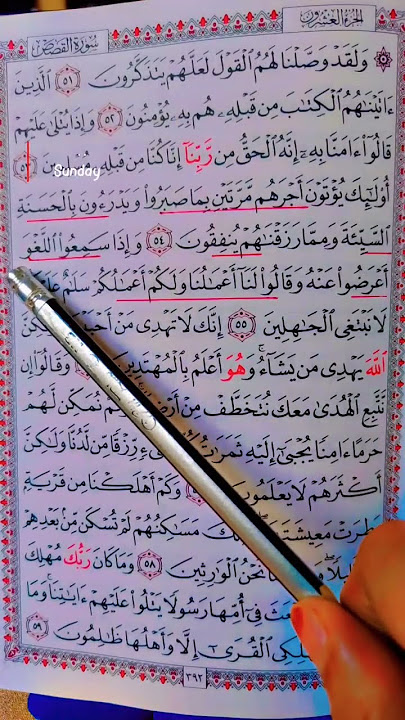 الجزء العشرون
سورة القصص
۞ وَلَقَدْ وَصَّلْنَا لَهُمُ ٱلْقَوْلَ لَعَلَّهُمْ يَتَذَكَّرُونَ ٥١ ٱلَّذِينَ
ءَاتَيْنَٰهُمُ ٱلْكِتَٰبَ مِن قَبْلِهِۦ هُم بِهِۦ يُؤْمِنُونَ ٥٢ وَإِذَا يُتْلَىٰ عَلَيْهِمْ
قَالُوٓا۟ ءَامَنَّا بِهِۦٓ إِنَّهُ ٱلْحَقُّ مِن رَّبِّنَآ إِنَّا كُنَّا مِن قَبْلِهِۦ
Sunday
أُو۟لَٰٓئِكَ يُؤْتَوْنَ أَجْرَهُم مَّرَّتَيْنِ بِمَا صَبَرُوا۟ وَيَدْرَءُونَ بِٱلْحَسَنَةِ
ٱلسَّيِّئَةَ وَمِمَّا رَزَقْنَٰهُمْ يُنفِقُونَ ٥٤ وَإِذَا سَمِعُوا۟ ٱللَّغْوَ
أَعْرَضُوا۟ عَنْهُ وَقَالُوا۟ لَنَآ أَعْمَٰلُنَا وَلَكُمْ أَعْمَٰلُكُمْ سَلَٰمٌ
لَا نَبْتَغِى ٱلْجَٰهِلِينَ ٥٥ إِنَّكَ لَا تَهْدِى مَنْ
ٱللَّهَ يَهْدِى مَن يَشَآءُ وَهُوَ أَعْلَمُ بِٱلْمُهْتَدِينَ وَقَالُوٓا۟ إِن
نَّتَّبِعِ ٱلْهُدَىٰ مَعَكَ نُتَخَطَّفْ مِنْ نُمَكِّن لَّهُمْ
حَرَمًا ءَامِنًا يُجْبَىٰٓ إِلَيْهِ ثَمَرَٰتُ رِّزْقًا مِّن لَّدُنَّا وَلَٰكِنَّ
أَكْثَرَهُمْ لَا يَعْلَمُونَ وَكَمْ أَهْلَكْنَا مِن قَرْيَةٍۭ
بَطِرَتْ مَعِيشَتَهَا مَسَٰكِنُهُمْ لَمْ تُسْكَن مِّنۢ بَعْدِهِمْ
نَحْنُ ٱلْوَٰرِثِينَ ٥٨ وَمَا كَانَ رَبُّكَ مُهْلِكَ
فِىٓ أُمِّهَا رَسُولًا يَتْلُوا۟ عَلَيْهِمْ ءَايَٰتِنَا وَمَا
ٱلْقُرَىٰٓ إِلَّا وَأَهْلُهَا ظَٰلِمُونَ ٥٩
٣٩٢